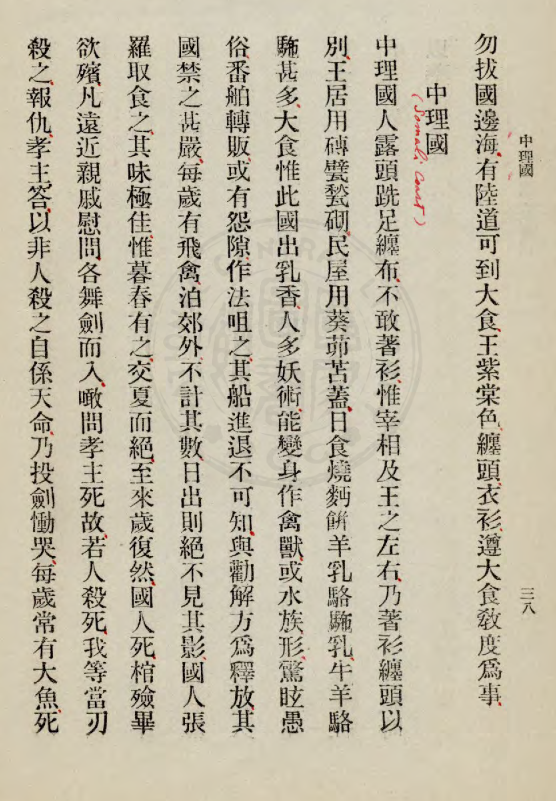 中理國
三八
勿拔國邊海有陸道可到大食王紫棠色纏頭衣衫遵大食教度爲事
中理國
(Somali Coast)
中理國人露頭跣足纏布不敢著衫惟宰相及王之左右乃著衫纏頭以
別王居用磚甓甃砌民屋用葵茆苫蓋日食燒麪餅羊乳駱駞乳牛羊駱
駞甚多大食惟此國出乳香人多妖術能變身作禽獸或水族形驚眩愚
俗番舶轉販或有怨隙作法咀之其船進退不可知與勸解方爲釋放其
國禁之甚嚴每歲有飛禽泊郊外不計其數日出則絕不見其影國人張
羅取食之其味極佳惟暮春有之交夏而絕至來歲復然國人死棺殮畢
欲殯凡遠近親戚慰問各舞劍而入噉問孝主死故若人殺死我等當刃
殺之報仇孝主答以非人殺之自係天命乃投劍慟哭每歲常有大魚死